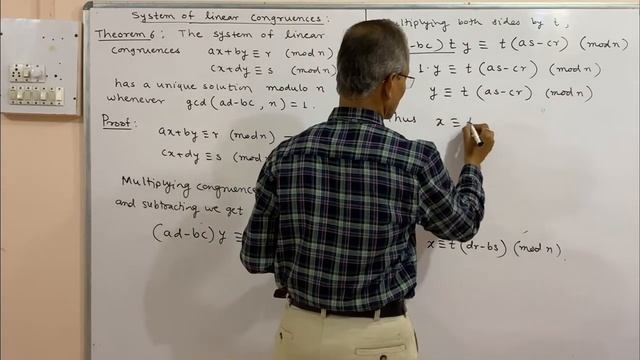 System of linear Congruences:
Theorem 6: The system of linear
congruences ax+by ≡ r (mod n)
cx+dy ≡ s (mod n)
has a unique solution modulo n
whenever gcd(ad-bc, n) = 1.
Proof:
ax+by ≡ r (mod n)
cx+dy ≡ s (mod n)
Multiplying congruence
and subtracting we get
(ad-bc) y ≡
Multiplying both sides by t,
-bc) t y ≡ t (as-cr) (mod n)
1. y ≡ t (as-cr) (mod n)
y ≡ t (as-cr) (mod n)
Thus x ≡
x ≡ t (dr-bs) (mod n).